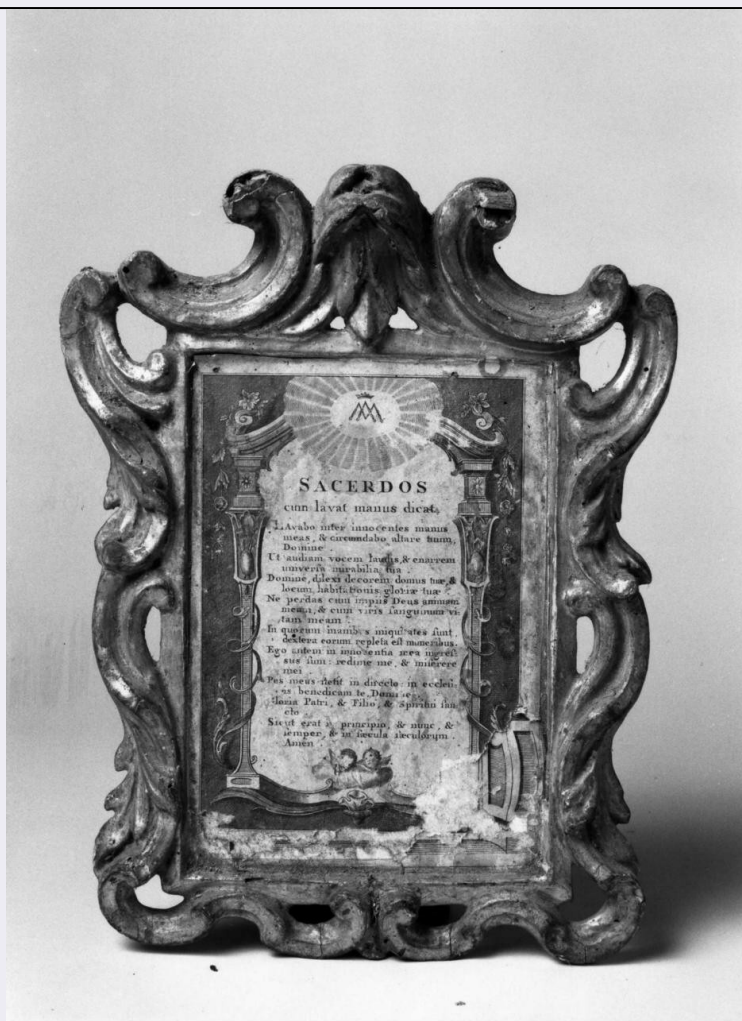 SACERDOS
cum lavat manus dicat.
LAvabo inter innocentes manus
meas, & circumdabo altare tuum,
Domine.
Ut audiam vocem laudis, & enarrem
universa mirabilia tua.
Domine, dilexi decorem domus tuæ, &
locum habitationis gloriæ tuæ.
Ne perdas cum impiis Deus animam
meam, & cum viris sanguinum vi-
tam meam.
In quorum manibus iniquitates sunt,
dextera eorum repleta est muneribus.
Ego autem in innocentia mea ingres-
sus sum: redime me, & miserere
mei.
Pes meus stetit in directo: in ecclesi-
is benedicam te Domine.
Gloria Patri, & Filio, & Spiritui san
cto.
Sicut erat i principio, & nunc, &
semper, & in sæcula sæculorum.
Amen.